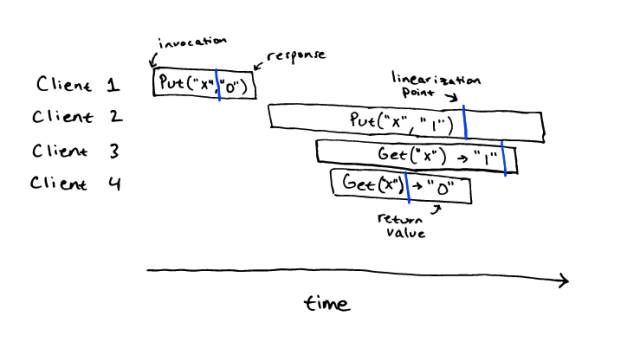 invocation
response
Client 1
Put("x","0")
linearization
point
Client 2
Put("x","1")
Client 3
Get("x") → "1"
Client 4
Get("x") → "0"
return
value
time